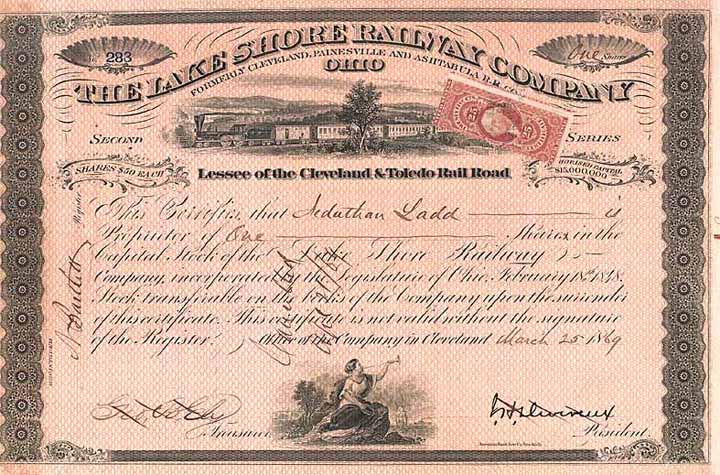 No. 283
One Shares
THE LAKE SHORE RAILWAY COMPANY
FORMERLY CLEVELAND, PAINESVILLE AND ASHTABULA R.R. CO.
OHIO
SECOND SERIES
SHARES $50 EACH
25 25
CAPITAL $15,000,000
Lessee of the Cleveland & Toledo Rail Road
This Certifies, that Jeduthan Ladd is
Proprietor of One Shares in the
Capital Stock of the Lake Shore Railway
Company, incorporated by the Legislature of Ohio, February 18th 1848.
Stock transferable on the books of the Company upon the surrender
of this certificate. This certificate is not valid without the signature
of the Register. Office of the Company in Cleveland March 25 1869
N Bartlett
Register
REGISTER
Cancelled
Treasurer
President